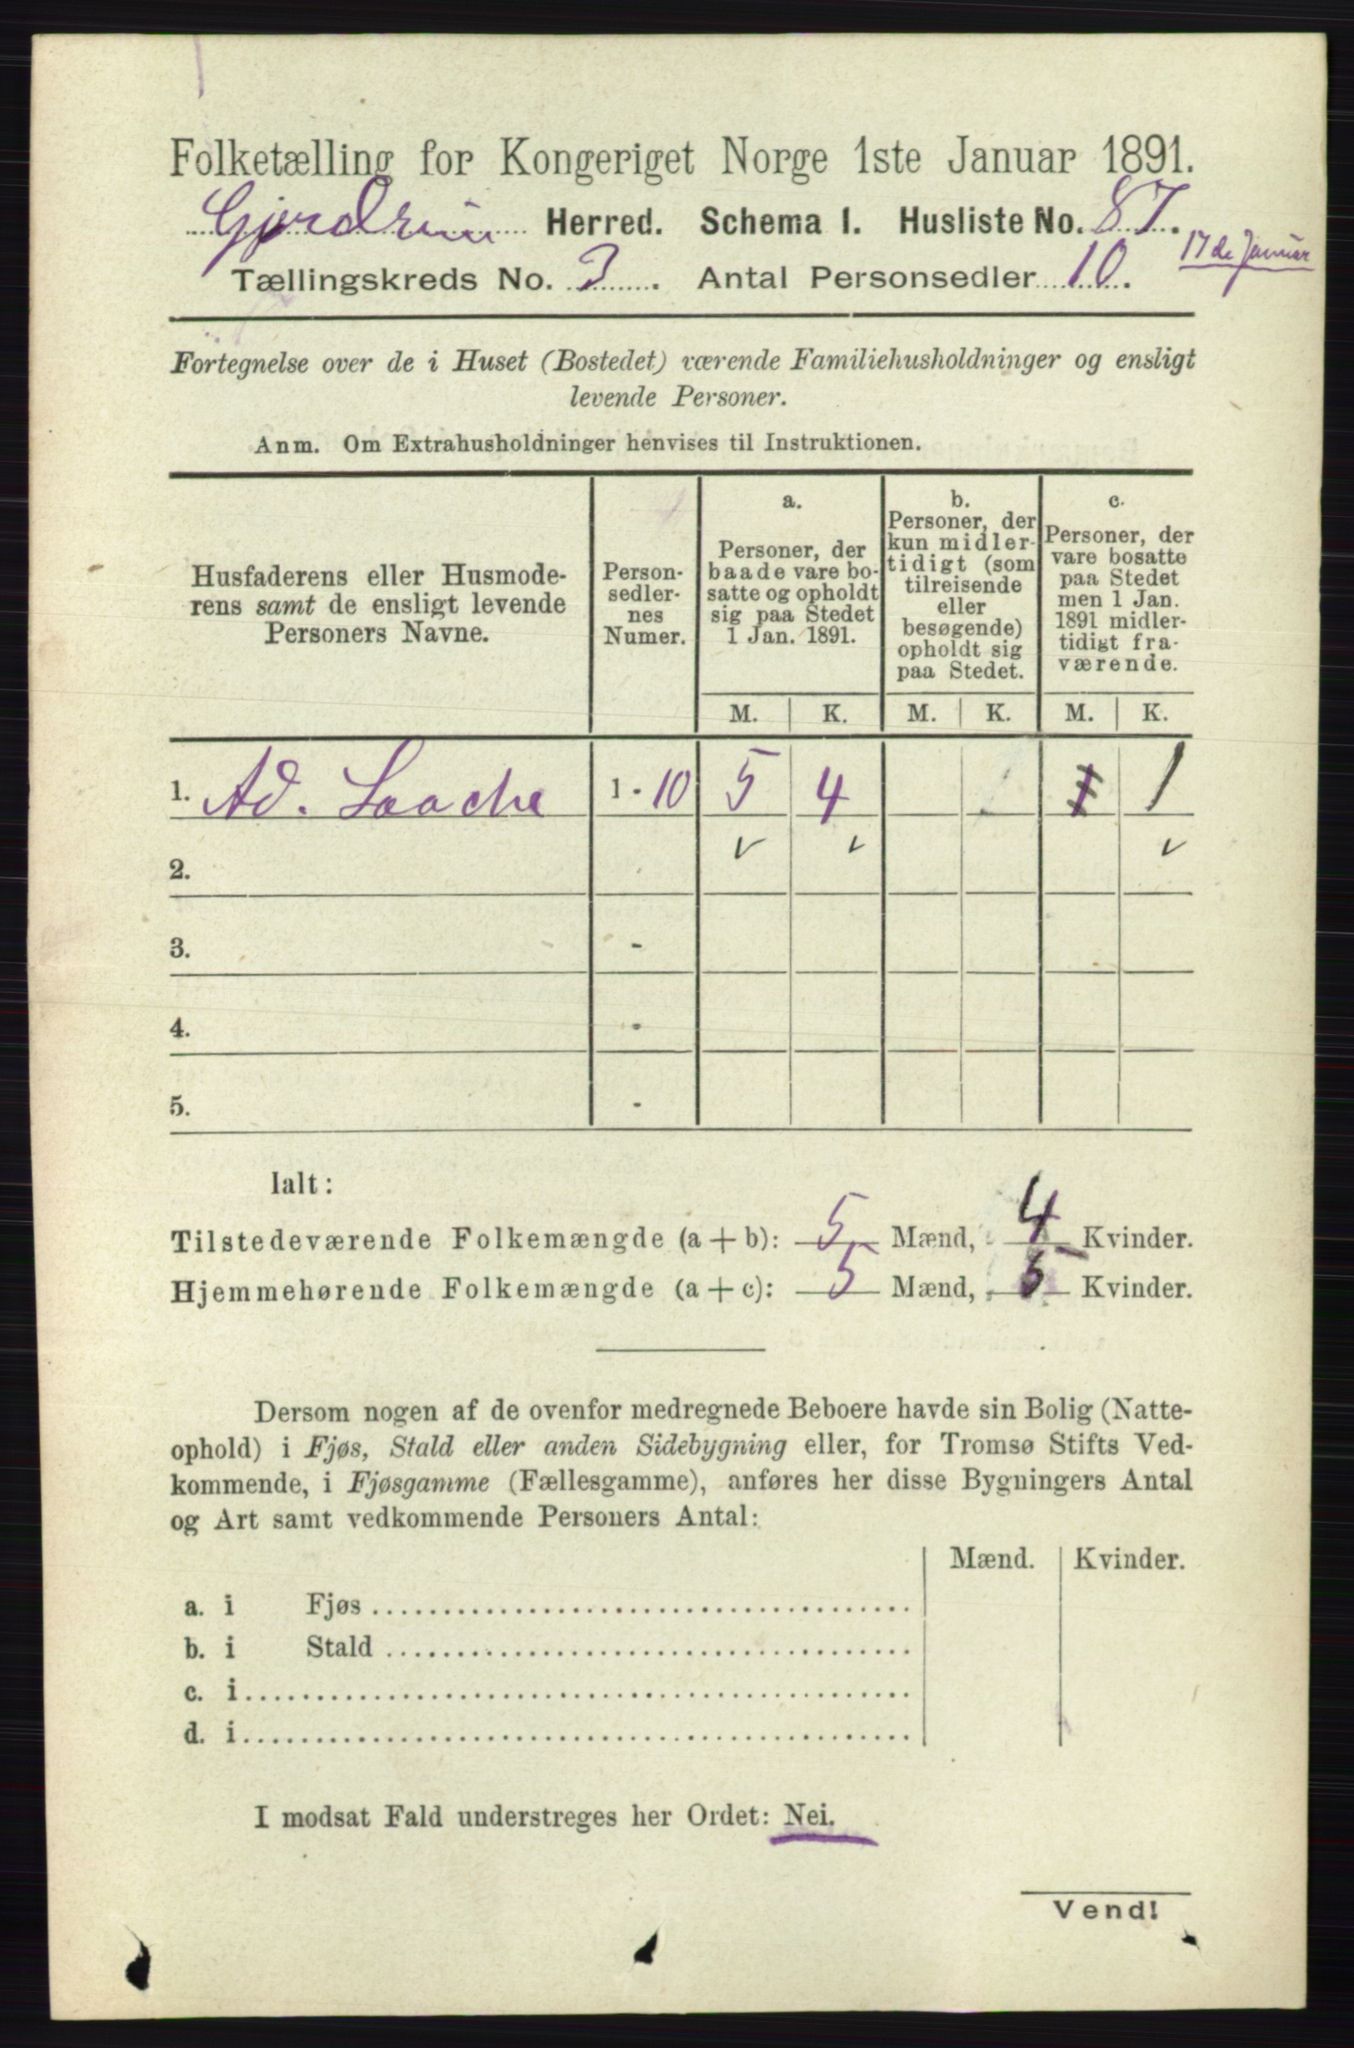 Folketælling for Kongeriget Norge 1ste Januar 1891.
Gjerdrum Herred. Schema I. Husliste No. 87.
17de Januar
Tællingskreds No. 3. Antal Personsedler 10.
Fortegnelse over de i Huset (Bostedet) værende Familiehusholdninger og ensligt
levende Personer.
Anm. Om Extrahusholdninger henvises til Instruktionen.
Husfaderens eller Husmode-
rens samt de ensligt levende
Personers Navne.
Person-
sedler-
nes
Numer.
a.
Personer, der
baade vare bo-
satte og opholdt
sig paa Stedet
1 Jan. 1891.
b.
Personer, der
kun midler-
tidigt (som
tilreisende
eller
besøgende)
opholdt sig
paa Stedet.
c.
Personer, der
vare bosatte
paa Stedet
men 1 Jan.
1891 midler-
tidigt fra-
værende.
M. K. M. K. M. K.
1. Ad. Laache 1 - 10 5 4 1 1
2. -
3. -
4. -
5. -
Ialt:
Tilstedeværende Folkemængde (a + b): 5 Mænd, 4 Kvinder.
Hjemmehørende Folkemængde (a + c): 5 Mænd, 5 Kvinder.
Dersom nogen af de ovenfor medregnede Beboere havde sin Bolig (Natte-
ophold) i Fjøs, Stald eller anden Sidebygning eller, for Tromsø Stifts Ved-
kommende, i Fjøsgamme (Fællesgamme), anføres her disse Bygningers Antal
og Art samt vedkommende Personers Antal:
Mænd. Kvinder.
a. i Fjøs
b. i Stald
c. i
d. i
I modsat Fald understreges her Ordet: Nei.
Vend!